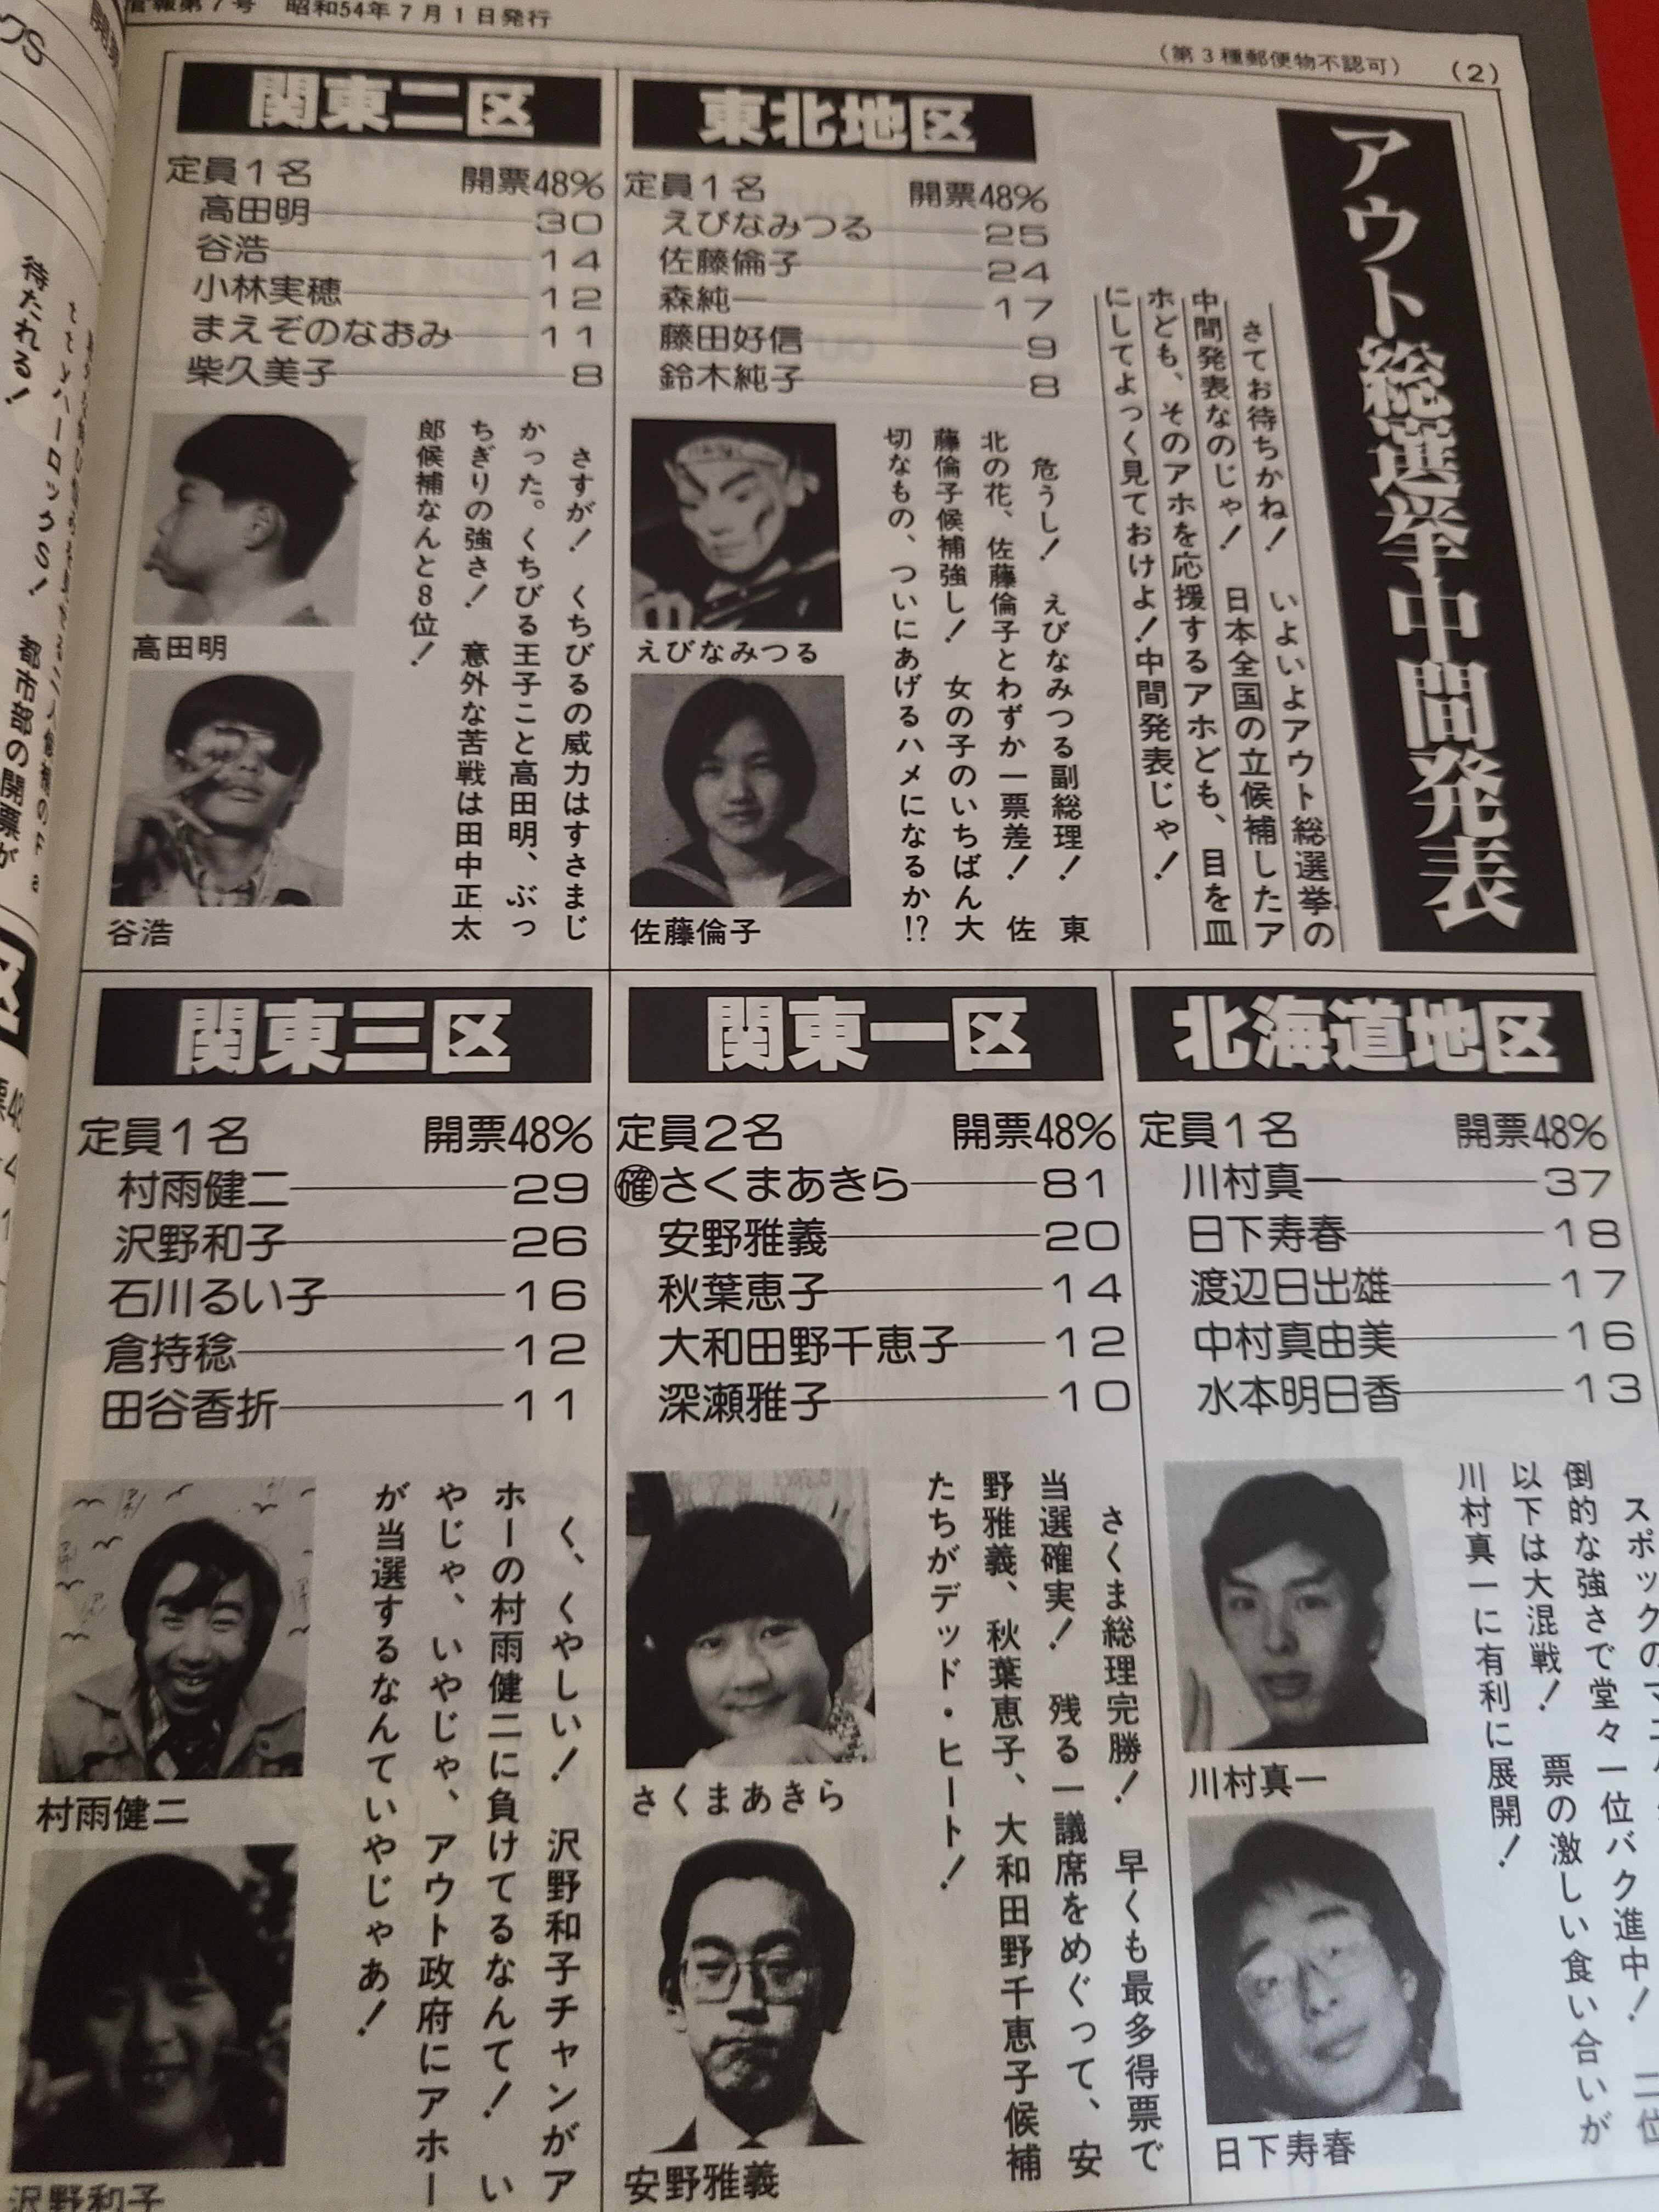 報第7号　昭和54年7月1日発行
(第3種郵便物不認可)　(2)
アウト総選挙中間発表
さてお待ちかね！　いよいよアウト総選挙の
中間発表なのじゃ！　日本全国の立候補したア
ホども、そのアホを応援するアホども、目を皿
にしてよっく見ておけよ！中間発表じゃ！
東北地区
定員1名　開票48%
えびなみつる 25
佐藤倫子 24
森純一 17
藤田好信 9
鈴木純子 8
危うし！　えびなみつる副総理！　東
北の花、佐藤倫子とわずか一票差！　佐
藤倫子候補強し！　女の子のいちばん大
切なもの、ついにあげるハメになるか!?
えびなみつる
佐藤倫子
関東二区
定員1名　開票48%
高田明 30
谷浩 14
小林実穂 12
まえぞのなおみ 11
柴久美子 8
さすが！　くちびるの威力はすさまじ
かった。くちびる王子こと高田明、ぶっ
ちぎりの強さ！　意外な苦戦は田中正太
郎候補なんと8位！
高田明
谷浩
北海道地区
定員1名　開票48%
川村真一 37
日下寿春 18
渡辺日出雄 17
中村真由美 16
水本明日香 13
スポックの
倒的な強さで堂々一位バク進中！　二位
以下は大混戦！　票の激しい食い合いが
川村真一に有利に展開！
川村真一
日下寿春
関東一区
定員2名　開票48%
確さくまあきら 81
安野雅義 20
秋葉恵子 14
大和田野千恵子 12
深瀬雅子 10
さくま総理完勝！　早くも最多得票で
当選確実！　残る一議席をめぐって、安
野雅義、秋葉恵子、大和田野千恵子候補
たちがデッド・ヒート！
さくまあきら
安野雅義
関東三区
定員1名　開票48%
村雨健二 29
沢野和子 26
石川るい子 16
倉持稔 12
田谷香折 11
く、くやしい！　沢野和子チャンがア
ホーの村雨健二に負けてるなんて！　い
やじゃ、いやじゃ、アウト政府にアホー
が当選するなんていやじゃあ！
村雨健二
沢野和子
待たれる！
都市部の開票が